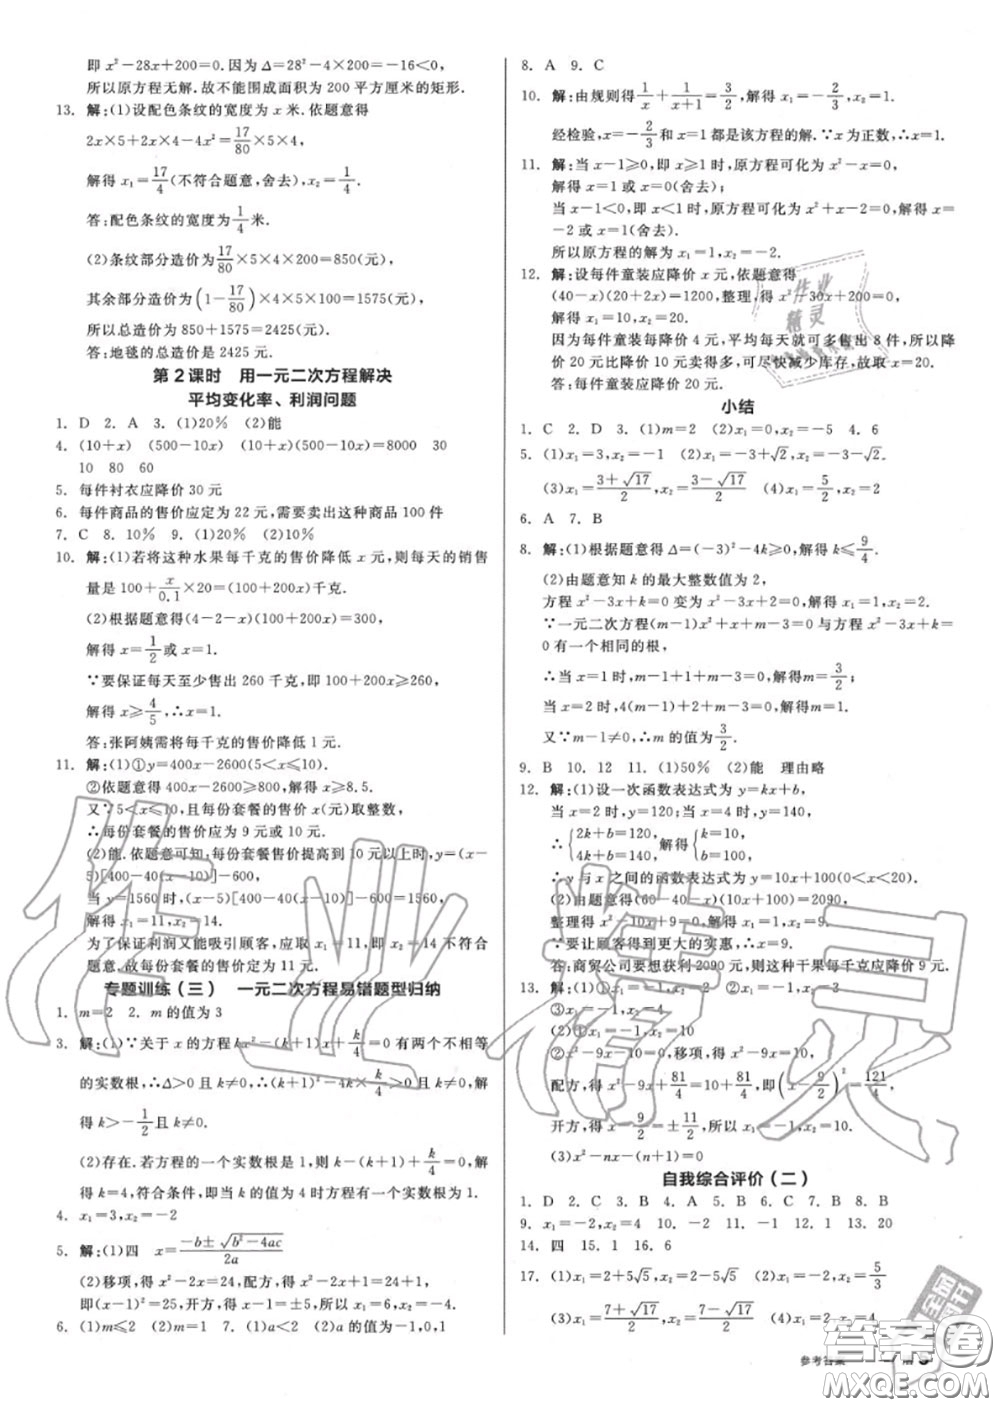 即 x²-28x+200=0.因为 Δ=28²-4×200=-16<0,
所以原方程无解.故不能围成面积为 200 平方厘米的矩形.
13. 解:(1)设配色条纹的宽度为 x 米.依题意得
2x×5+2x×4-4x²=17/80×5×4,
解得 x₁=17/4(不符合题意,舍去),x₂=1/4.
答:配色条纹的宽度为1/4米.
(2)条纹部分造价为17/80×5×4×200=850(元),
其余部分造价为(1-17/80)×4×5×100=1575(元),
所以总造价为 850+1575=2425(元).
答:地毯的总造价是 2425 元.
第 2 课时 用一元二次方程解决
平均变化率、利润问题
1. D 2. A 3. (1)20% (2)能
4. (10+x) (500-10x) (10+x)(500-10x)=8000 30
10 80 60
5. 每件衬衣应降价 30 元
6. 每件商品的售价应定为 22 元,需要卖出这种商品 100 件
7. C 8. 10% 9. (1)20% (2)10%
10. 解:(1)若将这种水果每千克的售价降低 x 元,则每天的销售
量是 100+x/0.1×20=(100+200x)千克.
(2)根据题意得(4-2-x)(100+200x)=300,
解得 x=1/2或 x=1.
∵要保证每天至少售出 260 千克,即 100+200x≥260,
解得 x≥4/5,∴x=1.
答:张阿姨需将每千克的售价降低 1 元.
11. 解:(1)①y=400x-2600(5<x≤10).
②依题意得 400x-2600≥800,解得 x≥8.5.
又∵5<x≤10,且每份套餐的售价 x(元)取整数,
∴每份套餐的售价应为 9 元或 10 元.
(2)能.依题意可知:每份套餐售价提高到 10 元以上时,y=(x-
5)[400-40(x-10)]-600,
当 y=1560 时,(x-5)[400-40(x-10)]-600=1560,
解得 x₁=11,x₂=14.
为了保证利润又能吸引顾客,应取 x₁=11,即 x₂=14 不符合
题意.故每份套餐的售价定为 11 元.
专题训练(三) 一元二次方程易错题型归纳
1. m=2 2. m 的值为 3
3. 解:(1)∵关于 x 的方程 kx²-(k+1)x+k/4=0 有两个不相等
的实数根,∴Δ>0 且 k≠0,∴(k+1)²-4k×k/4>0 且 k≠0,解
得 k>-1/2且 k≠0.
(2)存在.若方程的一个实数根是 1,则 k-(k+1)+k/4=0,解
得 k=4,符合条件,即当 k 的值为 4 时方程有一个实数根为 1.
4. x₁=3,x₂=-2
5. 解:(1)四 x=(-b±√(b²-4ac))/2a
(2)移项,得 x²-2x=24,配方,得 x²-2x+1=24+1,
即(x-1)²=25,开方,得 x-1=±5,所以 x₁=6,x₂=-4.
6. (1)m≤2 (2)m=1 7. (1)a<2 (2)a 的值为-1,0,1
8. A 9. C
10. 解:由规则得1/x+1/(x+1)=3/2,解得 x₁=-2/3,x₂=1.
经检验,x=-2/3和 x=1 都是该方程的解.∵x 为正数,∴x=1.
11. 解:当 x-1≥0,即 x≥1 时,原方程可化为 x²-x=0,
解得 x=1 或 x=0(舍去);
当 x-1<0,即 x<1 时,原方程可化为 x²+x-2=0,解得
x=-2 或 x=1(舍去).
所以原方程的解为 x₁=1,x₂=-2.
12. 解:设每件童装应降价 x 元,依题意得
(40-x)(20+2x)=1200,整理,得 x²-30x+200=0,
解得 x₁=10,x₂=20.
因为每件童装每降价 4 元,平均每天就可多售出 8 件,所以
降价 20 元比降价 10 元卖得多,可尽快减少库存,故取 x=20.
答:每件童装应降价 20 元.
小结
1. C 2. D 3. (1)m=2 (2)x₁=0,x₂=-5 4. 6
5. (1)x₁=3,x₂=-1 (2)x₁=-3+√2,x₂=-3-√2.
(3)x₁=(3+√17)/2,x₂=(3-√17)/2 (4)x₁=5/2,x₂=2
6. A 7. B
8. 解:(1)根据题意得 Δ=(-3)²-4k≥0,解得 k≤9/4.
(2)由题意知 k 的最大整数值为 2,
方程 x²-3x+k=0 变为 x²-3x+2=0,解得 x₁=1,x₂=2.
∵一元二次方程(m-1)x²+x+m-3=0 与方程 x²-3x+k=
0 有一个相同的根,
∴当 x=1 时,m-1+1+m-3=0,解得m=3/2;
当 x=2 时,4(m-1)+2+m-3=0,解得m=1.
又∵m-1≠0,∴m 的值为3/2.
9. B 10. 12 11. (1)50% (2)能 理由略
12. 解:(1)设一次函数表达式为 y=kx+b,
当 x=2 时,y=120;当 x=4 时,y=140,
∴{2k+b=120, 4k+b=140, 解得{k=10, b=100,
∴y 与 x 之间的函数表达式为 y=10x+100(0<x<20).
(2)由题意得(60-40-x)(10x+100)=2090,
整理得 x²-10x+9=0,解得 x₁=1,x₂=9.
∵要让顾客得到更大的实惠,∴x=9.
答:商贸公司要想获利 2090 元,则这种干果每千克应降价 9 元.
13. 解:(1)①x₁=-1,x₂=2 ②x₁=-1,x₂=3
③x₁=-1,x₂=4
(2)①x₁=-1,x₂=10
②x²-9x-10=0,移项,得 x²-9x=10,
配方,得 x²-9x+81/4=10+81/4,即(x-9/2)²=121/4,
开方,得 x-9/2=±11/2,所以 x₁=-1,x₂=10.
(3)x²-nx-(n+1)=0
自我综合评价(二)
1. D 2. C 3. B 4. A 5. B 6. C 7. B 8. B
9. x₁=-2,x₂=4 10. -2 11. -1 12. 1 13. 20
14. 四 15. 1 16. 6
17. (1)x₁=2+5√5,x₂=2-5√5 (2)x₁=-2,x₂=5/3
(3)x₁=(7+√17)/4,x₂=(7-√17)/4 (4)x₁=-1,x₂=-3
参考答案
作业精灵
作业精灵
答案圈
MXQE.COM